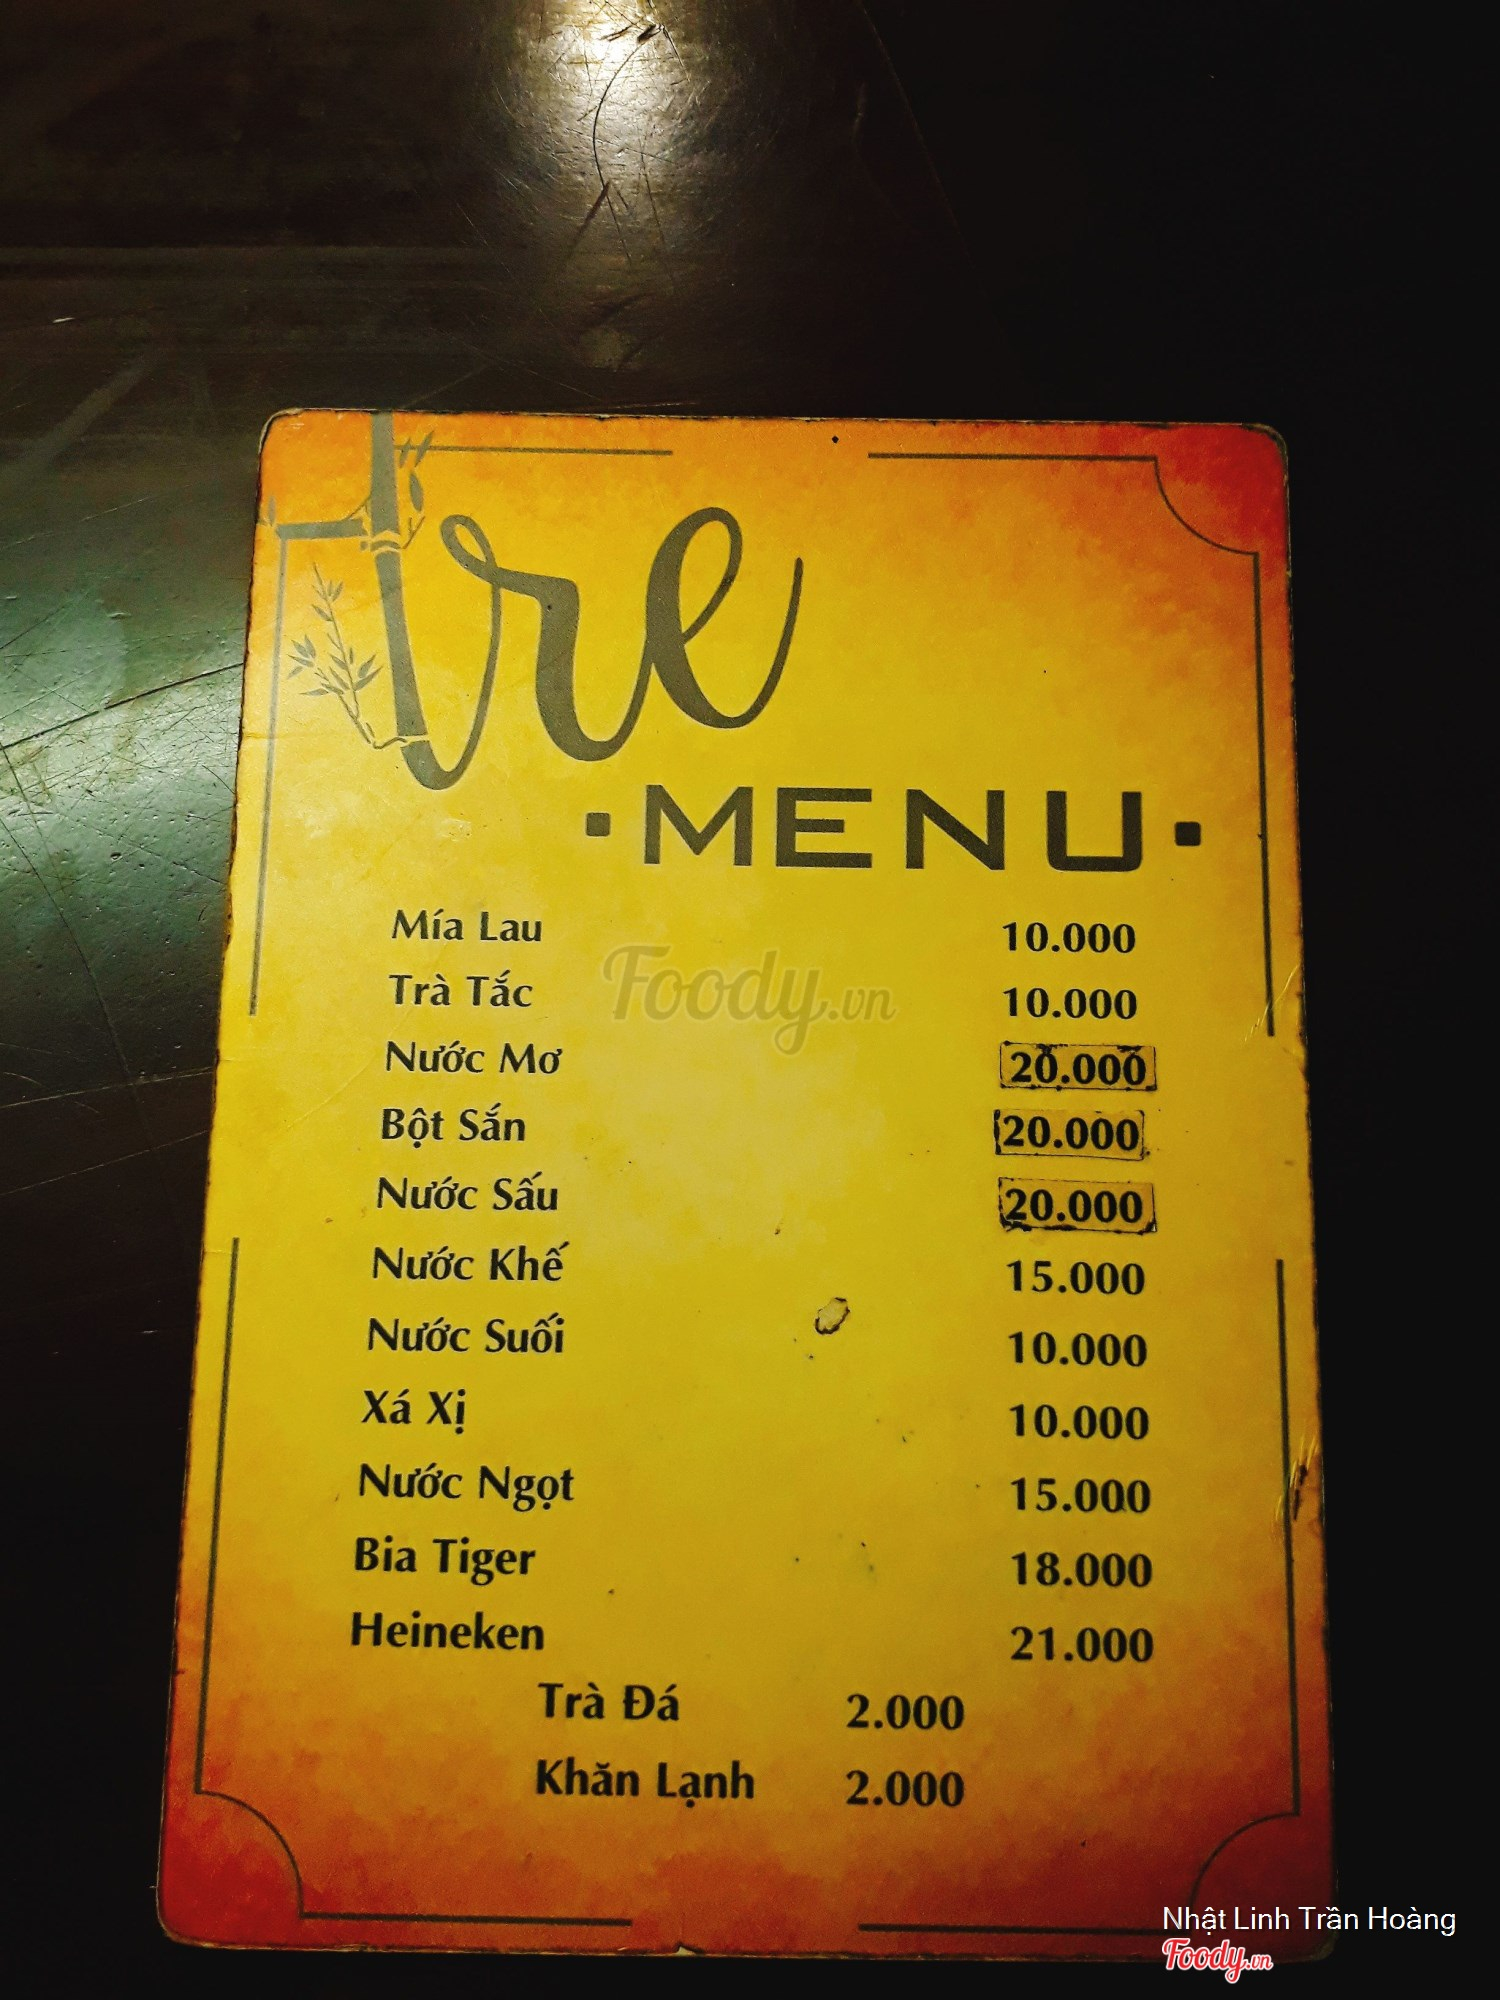 Tre
·MENU·
Mía Lau 10.000
Trà Tắc 10.000
Foody.vn
Nước Mơ 20.000
Bột Sắn 20.000
Nước Sấu 20.000
Nước Khế 15.000
Nước Suối 10.000
Xá Xị 10.000
Nước Ngọt 15.000
Bia Tiger 18.000
Heineken 21.000
Trà Đá 2.000
Khăn Lạnh 2.000
Nhật Linh Trần Hoàng
Foody.vn